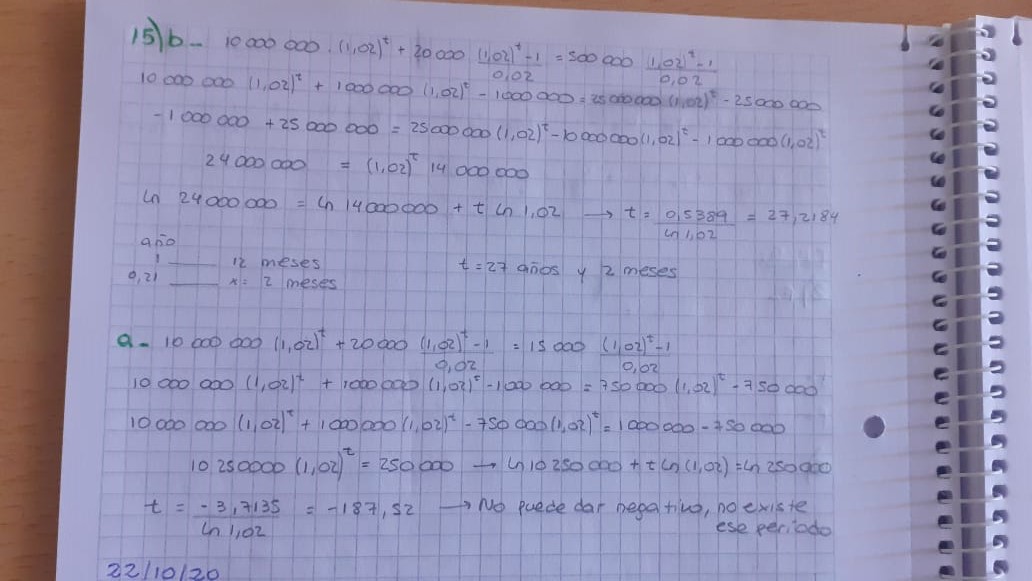 15) b - 10 000 000 . (1,02)^t + 20 000 (1,02)^t - 1 / 0,02 = 500 000 (1,02)^t - 1 / 0,02
10 000 000 (1,02)^t + 1000 000 (1,02)^t - 1000 000 = 25 000 000 (1,02)^t - 25 000 000
- 1 000 000 + 25 000 000 = 25 000 000 (1,02)^t - 10 000 000 (1,02)^t - 1 000 000 (1,02)^t
24 000 000 = (1,02)^t 14 000 000
ln 24 000 000 = ln 14 000 000 + t ln 1,02 → t = 0,5389 / ln 1,02 = 27,2184
año
1 —— 12 meses
0,21 —— x = 2 meses
t = 27 años y 2 meses
a - 10 000 000 (1,02)^t + 20 000 (1,02)^t - 1 / 0,02 = 15 000 (1,02)^t - 1 / 0,02
10 000 000 (1,02)^t + 1000 000 (1,02)^t - 1000 000 = 750 000 (1,02)^t - 750 000
10 000 000 (1,02)^t + 1 000 000 (1,02)^t - 750 000 (1,02)^t = 1 000 000 - 750 000
10 250 000 (1,02)^t = 250 000 → ln 10 250 000 + t ln (1,02) = ln 250 000
t = -3,7135 / ln 1,02 = -187,52 → No puede dar negativo, no existe
ese periodo
22/10/20